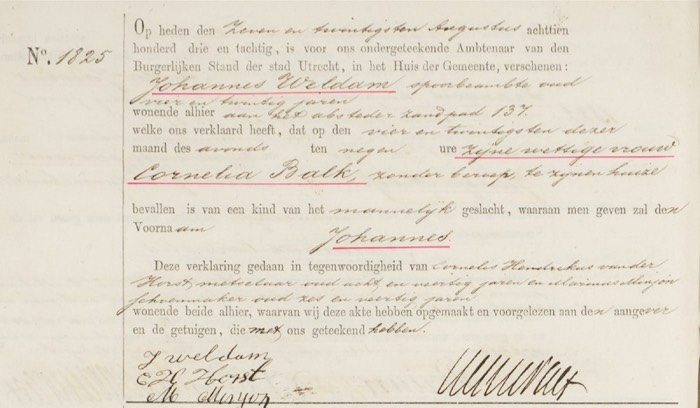 Op heden den Zeven en twintigsten Augustus achttien
honderd drie en tachtig, is voor ons ondergeteekende Ambtenaar van den
Nº. 1825
Burgerlijken Stand der stad Utrecht, in het Huis der Gemeente, verschenen:
Johannes Weldam spoorbeambte oud
vier en twintig jaren
wonende alhier aan het abstederzandpad 137.
welke ons verklaard heeft, dat op den vier en twintigsten dezer
maand des avonds ten negen ure zijne wettige vrouw
Cornelia Balk, zonder beroep, te zijnen huize
bevallen is van een kind van het mannelijk geslacht, waaraan men geven zal den
Voornaam
Johannes.
Deze verklaring gedaan in tegenwoordigheid van Cornelis Hendrikus vander
Horst metselaar oud acht en veertig jaren en Marinus Minjon
schoenmaker oud zes en veertig jaren
wonende beide alhier, waarvan wij deze akte hebben opgemaakt en voorgelezen aan den aangever
en de getuigen, die met ons geteekend hebben.
J weldam
C H Horst
M Minjon